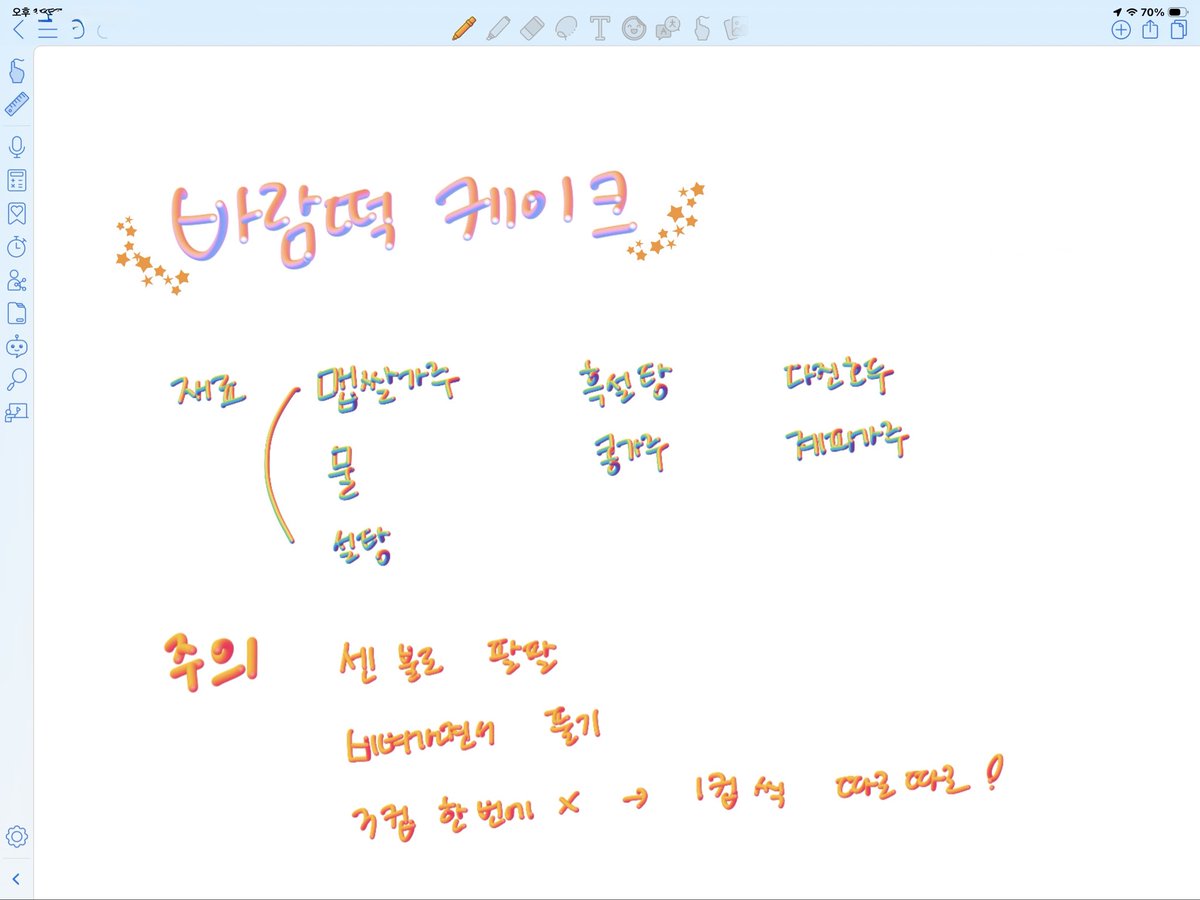 오후
70%
바람떡 케이크
재료 맵쌀가루 흑설탕 다진호두
물 콩가루 계피가루
설탕
주의 센 불로 팔팔
비벼가면서 풀기
3컵 한번에 X → 1컵씩 따로따로!